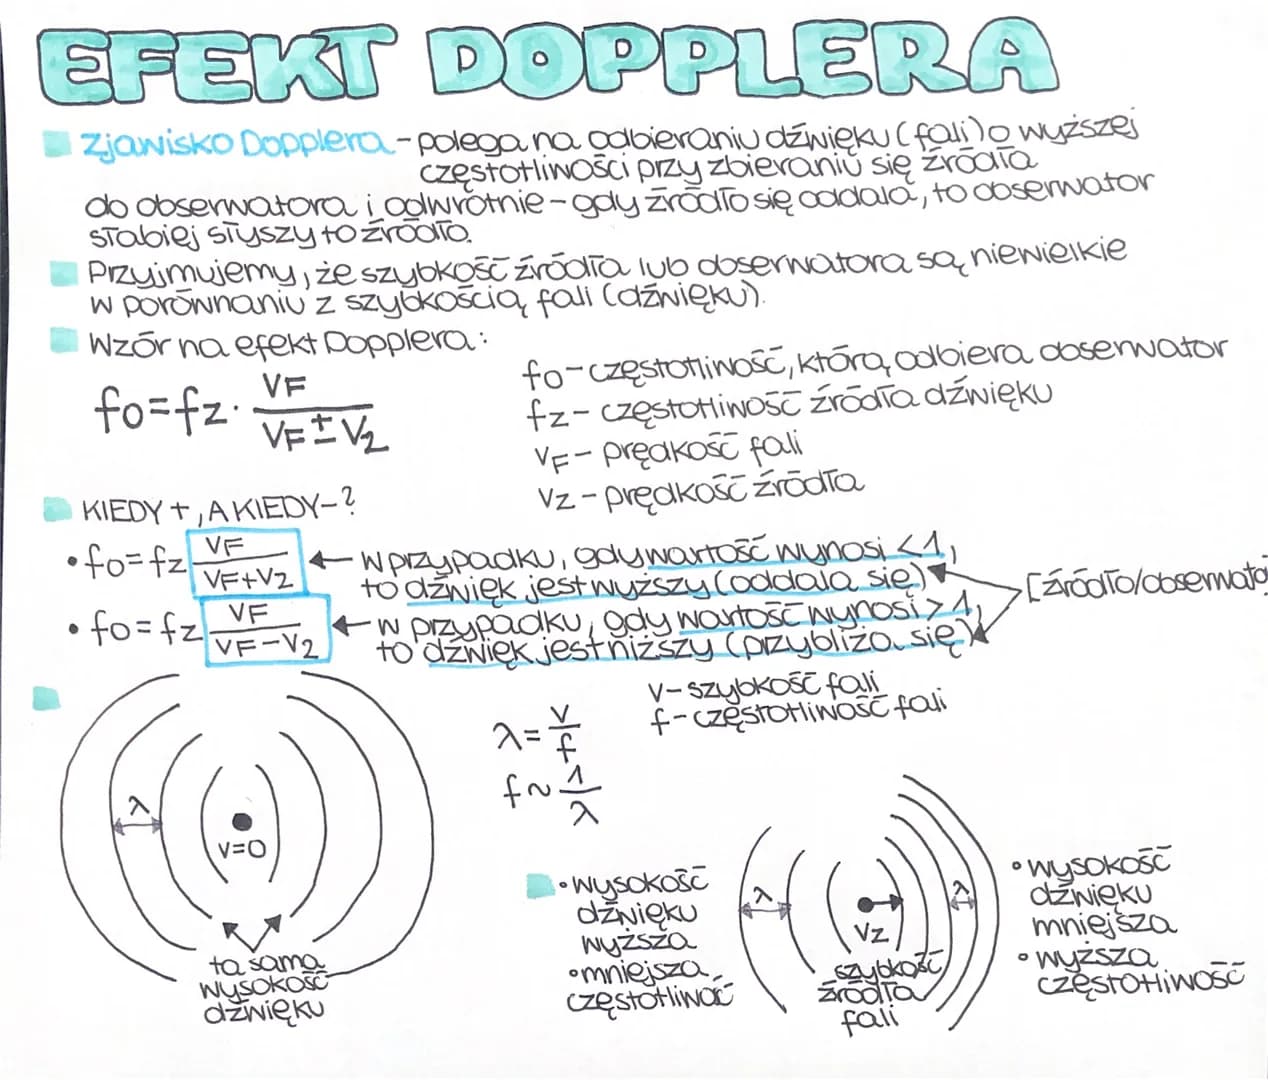 EFEKT DOPPLERA
Zjawisko Dopplera - polega na odbieraniu dźwięku (fali) o wyższej
częstotliwości przy zbieraniu się źródła
do obserwatora i odwrotnie - gdy źródło się oddala, to obserwator
słabiej słyszy to źródło.
Przyjmujemy, że szybkość źródła lub obserwatora są niewielkie
w porównaniu z szybkością fali (dźwięku).
Wzór na efekt Dopplera:
fo=fz· VF / VF±Vz
fo-częstotliwość, którą odbiera obserwator
fz- częstotliwość źródła dźwięku
VF- prędkość fali
Vz - prędkość źródła
KIEDY +, A KIEDY-?
• fo=fz VF / VF+Vz ← w przypadku, gdy wartość wynosi <1,
to dźwięk jest wyższy (oddala się)
• fo=fz VF / VF-Vz ← w przypadku, gdy wartość wynosi >1,
to dźwięk jest niższy (przybliża się)
[źródło/obserwato
λ
v=0
ta sama
wysokość
dźwięku
λ= v / f
f~ 1 / λ
v- szybkość fali
f- częstotliwość fali
• wysokość
dźwięku
wyższa
• mniejsza
częstotliwość
λ
Vz
szybkość
źródła
fali
λ
• wysokość
dźwięku
mniejsza
• wyższa
częstotliwość